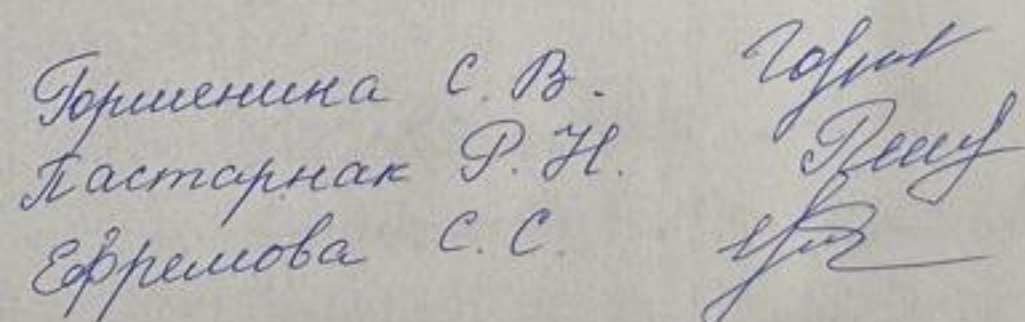 Горшенина С. В.
Пастарнак Р. Н.
Ефремова С. С.